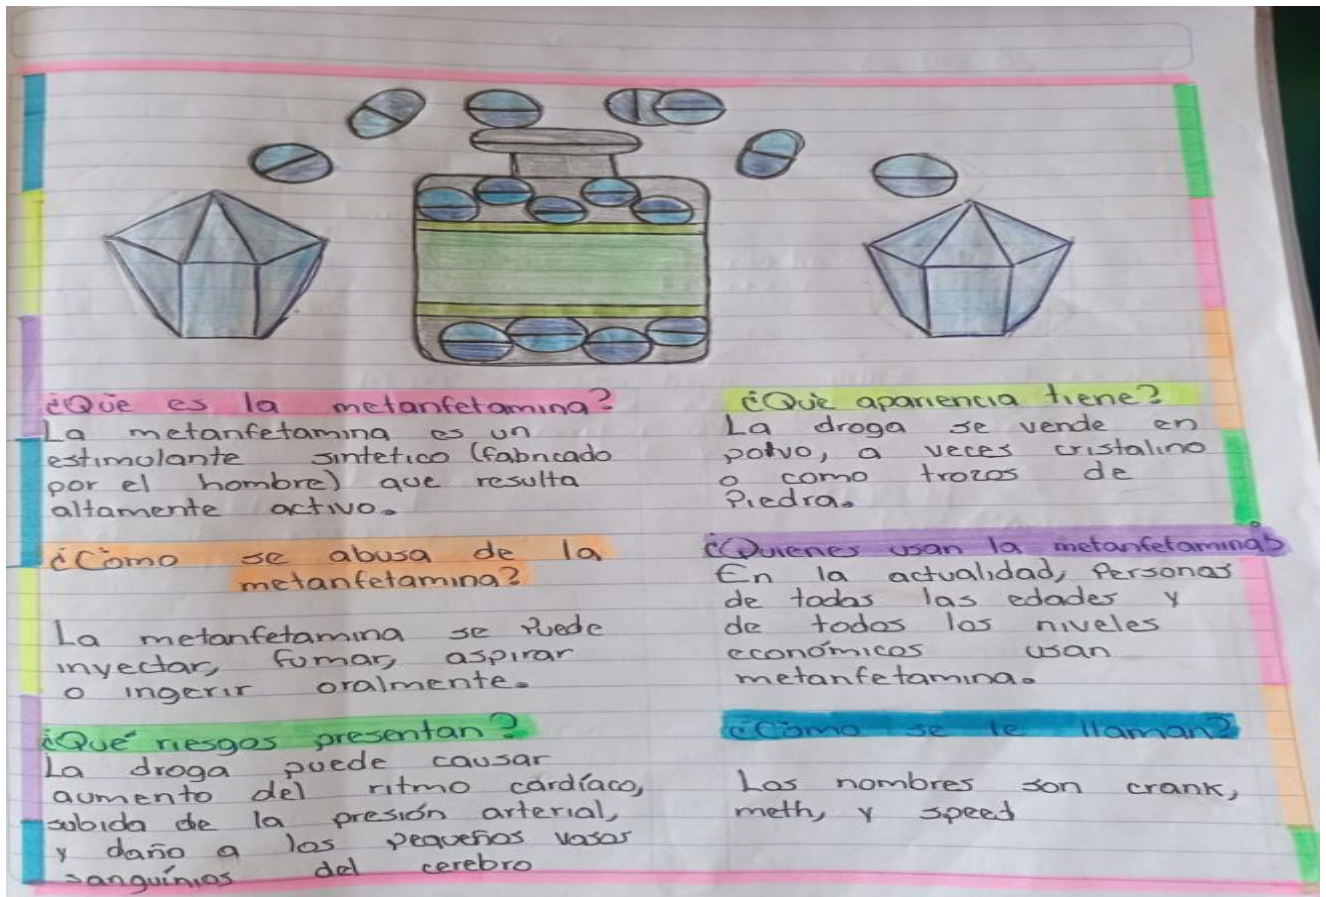 ¿Qué es la metanfetamina?
La metanfetamina es un
estimulante sintetico (fabricado
por el hombre) que resulta
altamente activo.
¿Cómo se abusa de la
metanfetamina?
La metanfetamina se Puede
inyectar, fumar, aspirar
o ingerir oralmente.
¿Qué riesgos presentan?
La droga puede causar
aumento del ritmo cardíaco,
subida de la presión arterial,
y daño a los pequeños vasos
sanguínios del cerebro
¿Qué apariencia tiene?
La droga se vende en
polvo, a veces cristalino
o como trozos de
Piedra.
¿Quienes usan la metanfetamina?
En la actualidad, Personas
de todas las edades y
de todos los niveles
económicos usan
metanfetamina.
¿Cómo se le llaman?
Los nombres son crank,
meth, y speed